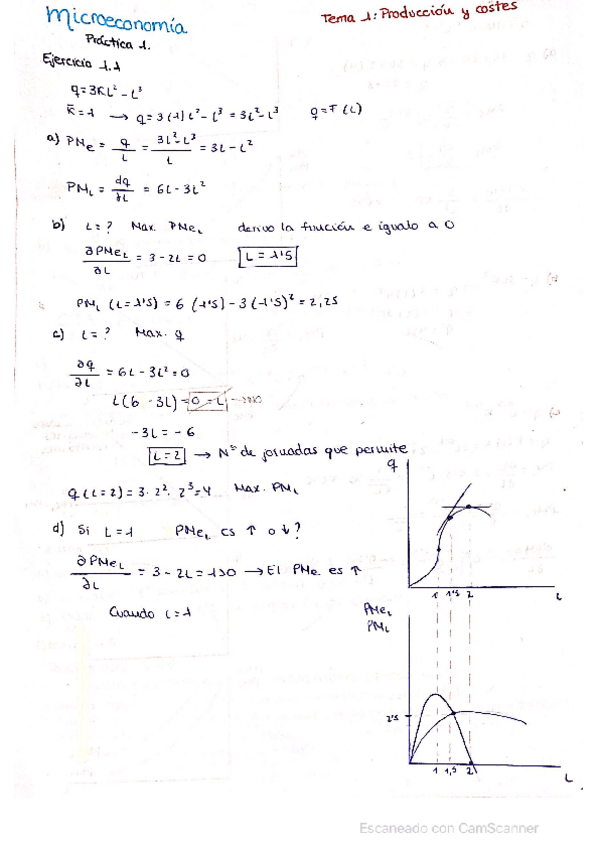 Microeconomía
Tema 1: Producción y costes
Práctica 1.
Ejercicio 1.1
q = 3KL² - L³
K̄ = 1 → q = 3(1)L² - L³ = 3L² - L³ q = F(L)
a) PMe = q/L = (3L² - L³)/L = 3L - L²
PML = dq/∂L = 6L - 3L²
b) L = ? Max. PMeL derivo la función e igualo a 0
∂PMeL/∂L = 3 - 2L = 0 L = 1'5
PML (L = 1'5) = 6 (1'5) - 3 (1'5)² = 2,25
c) L = ? Max. q
∂q/∂L = 6L - 3L² = 0
L(6 - 3L) = 0 - L →
-3L = -6
L = 2 → Nº de jornadas que permite
q (L = 2) = 3 · 2² · 2³ = 4 Max. PML
d) Si L = 1 PMeL es ↑ o ↓?
∂PMeL/∂L = 3 - 2L = 1 > 0 → El PMe es ↑
Cuando L = 1
q
1 1'5 2 L
PMeL
PML
2'5
1 1,5 2 L
Escaneado con CamScanner